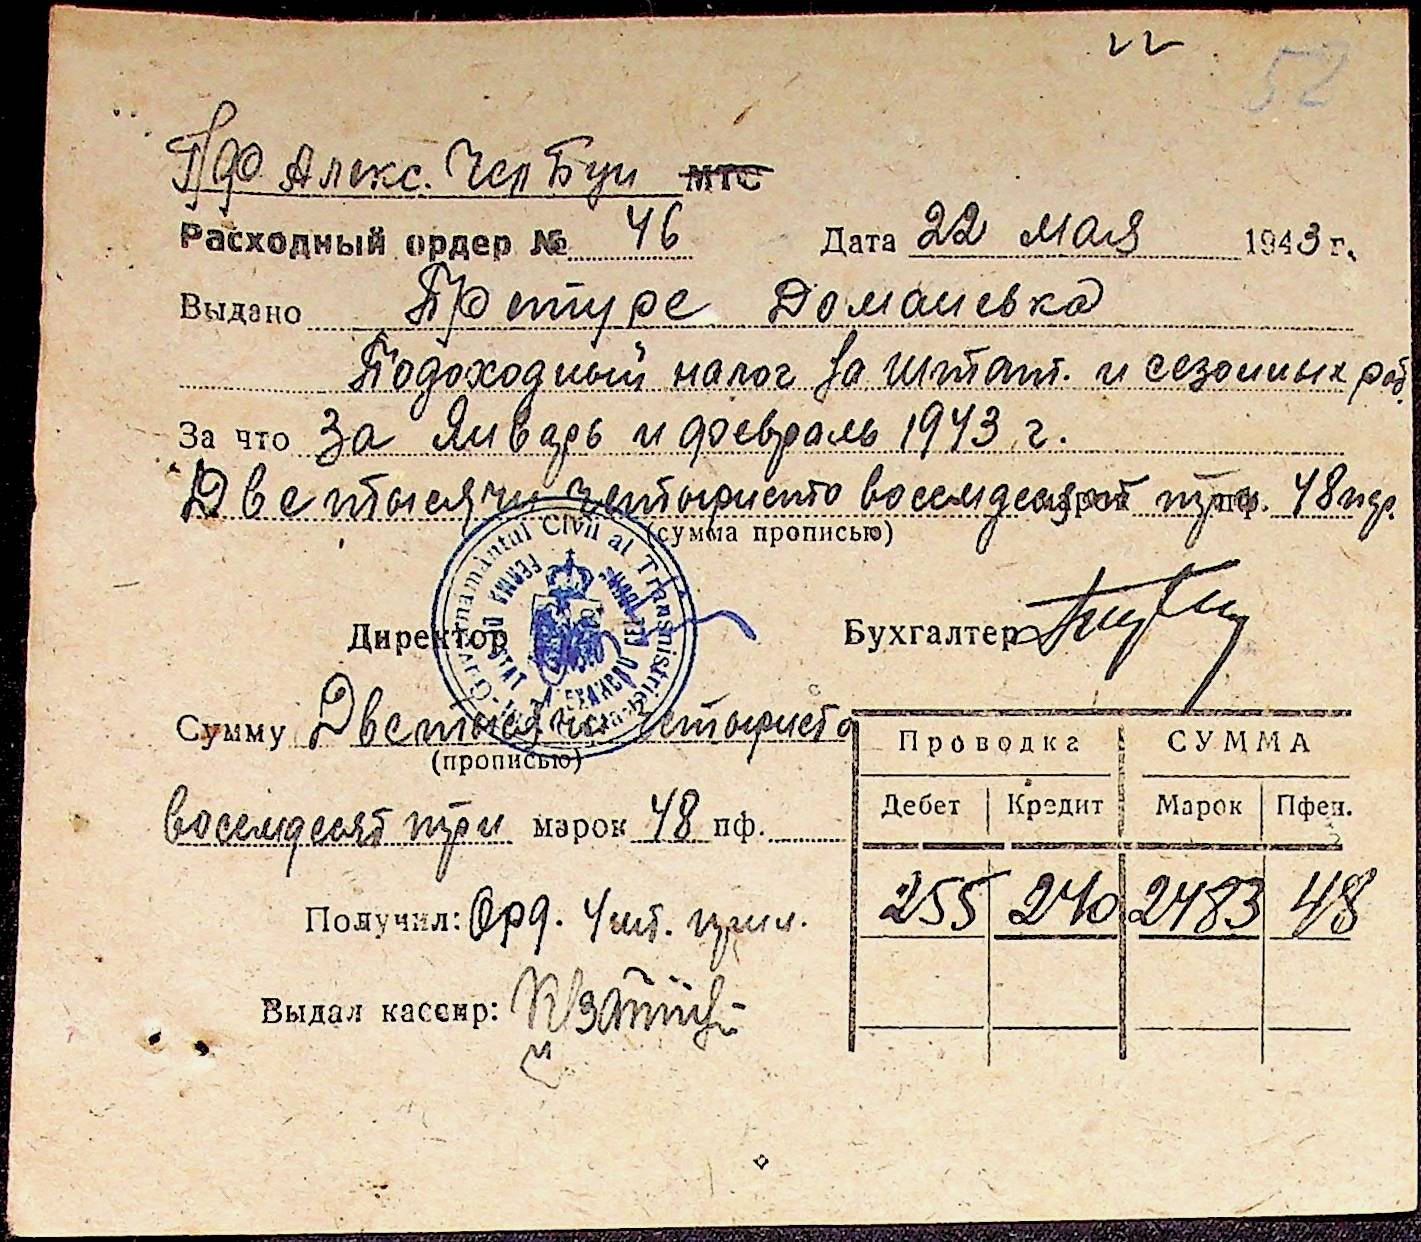 52
Алекс. МТС
Расходный ордер № 46 Дата 22 мая 1943 г.
Выдано Претуре Доманевка
Подоходный налог за штат. и сезонных раб.
За что За Январь и февраль 1943 г.
Две тысячи четыриста восемдесят три марок пф. 48 пф.
(сумма прописью)
Guvernământul Civil al Transnistriei
FERMA
Директор Бухгалтер
Сумму Две тысячи четыриста
(прописью)
восемдесят три марок 48 пф.
Проводка СУММА
Дебет Кредит Марок Пфен.
255 240 2483 48
Получил: Орд.
Выдал кассир: